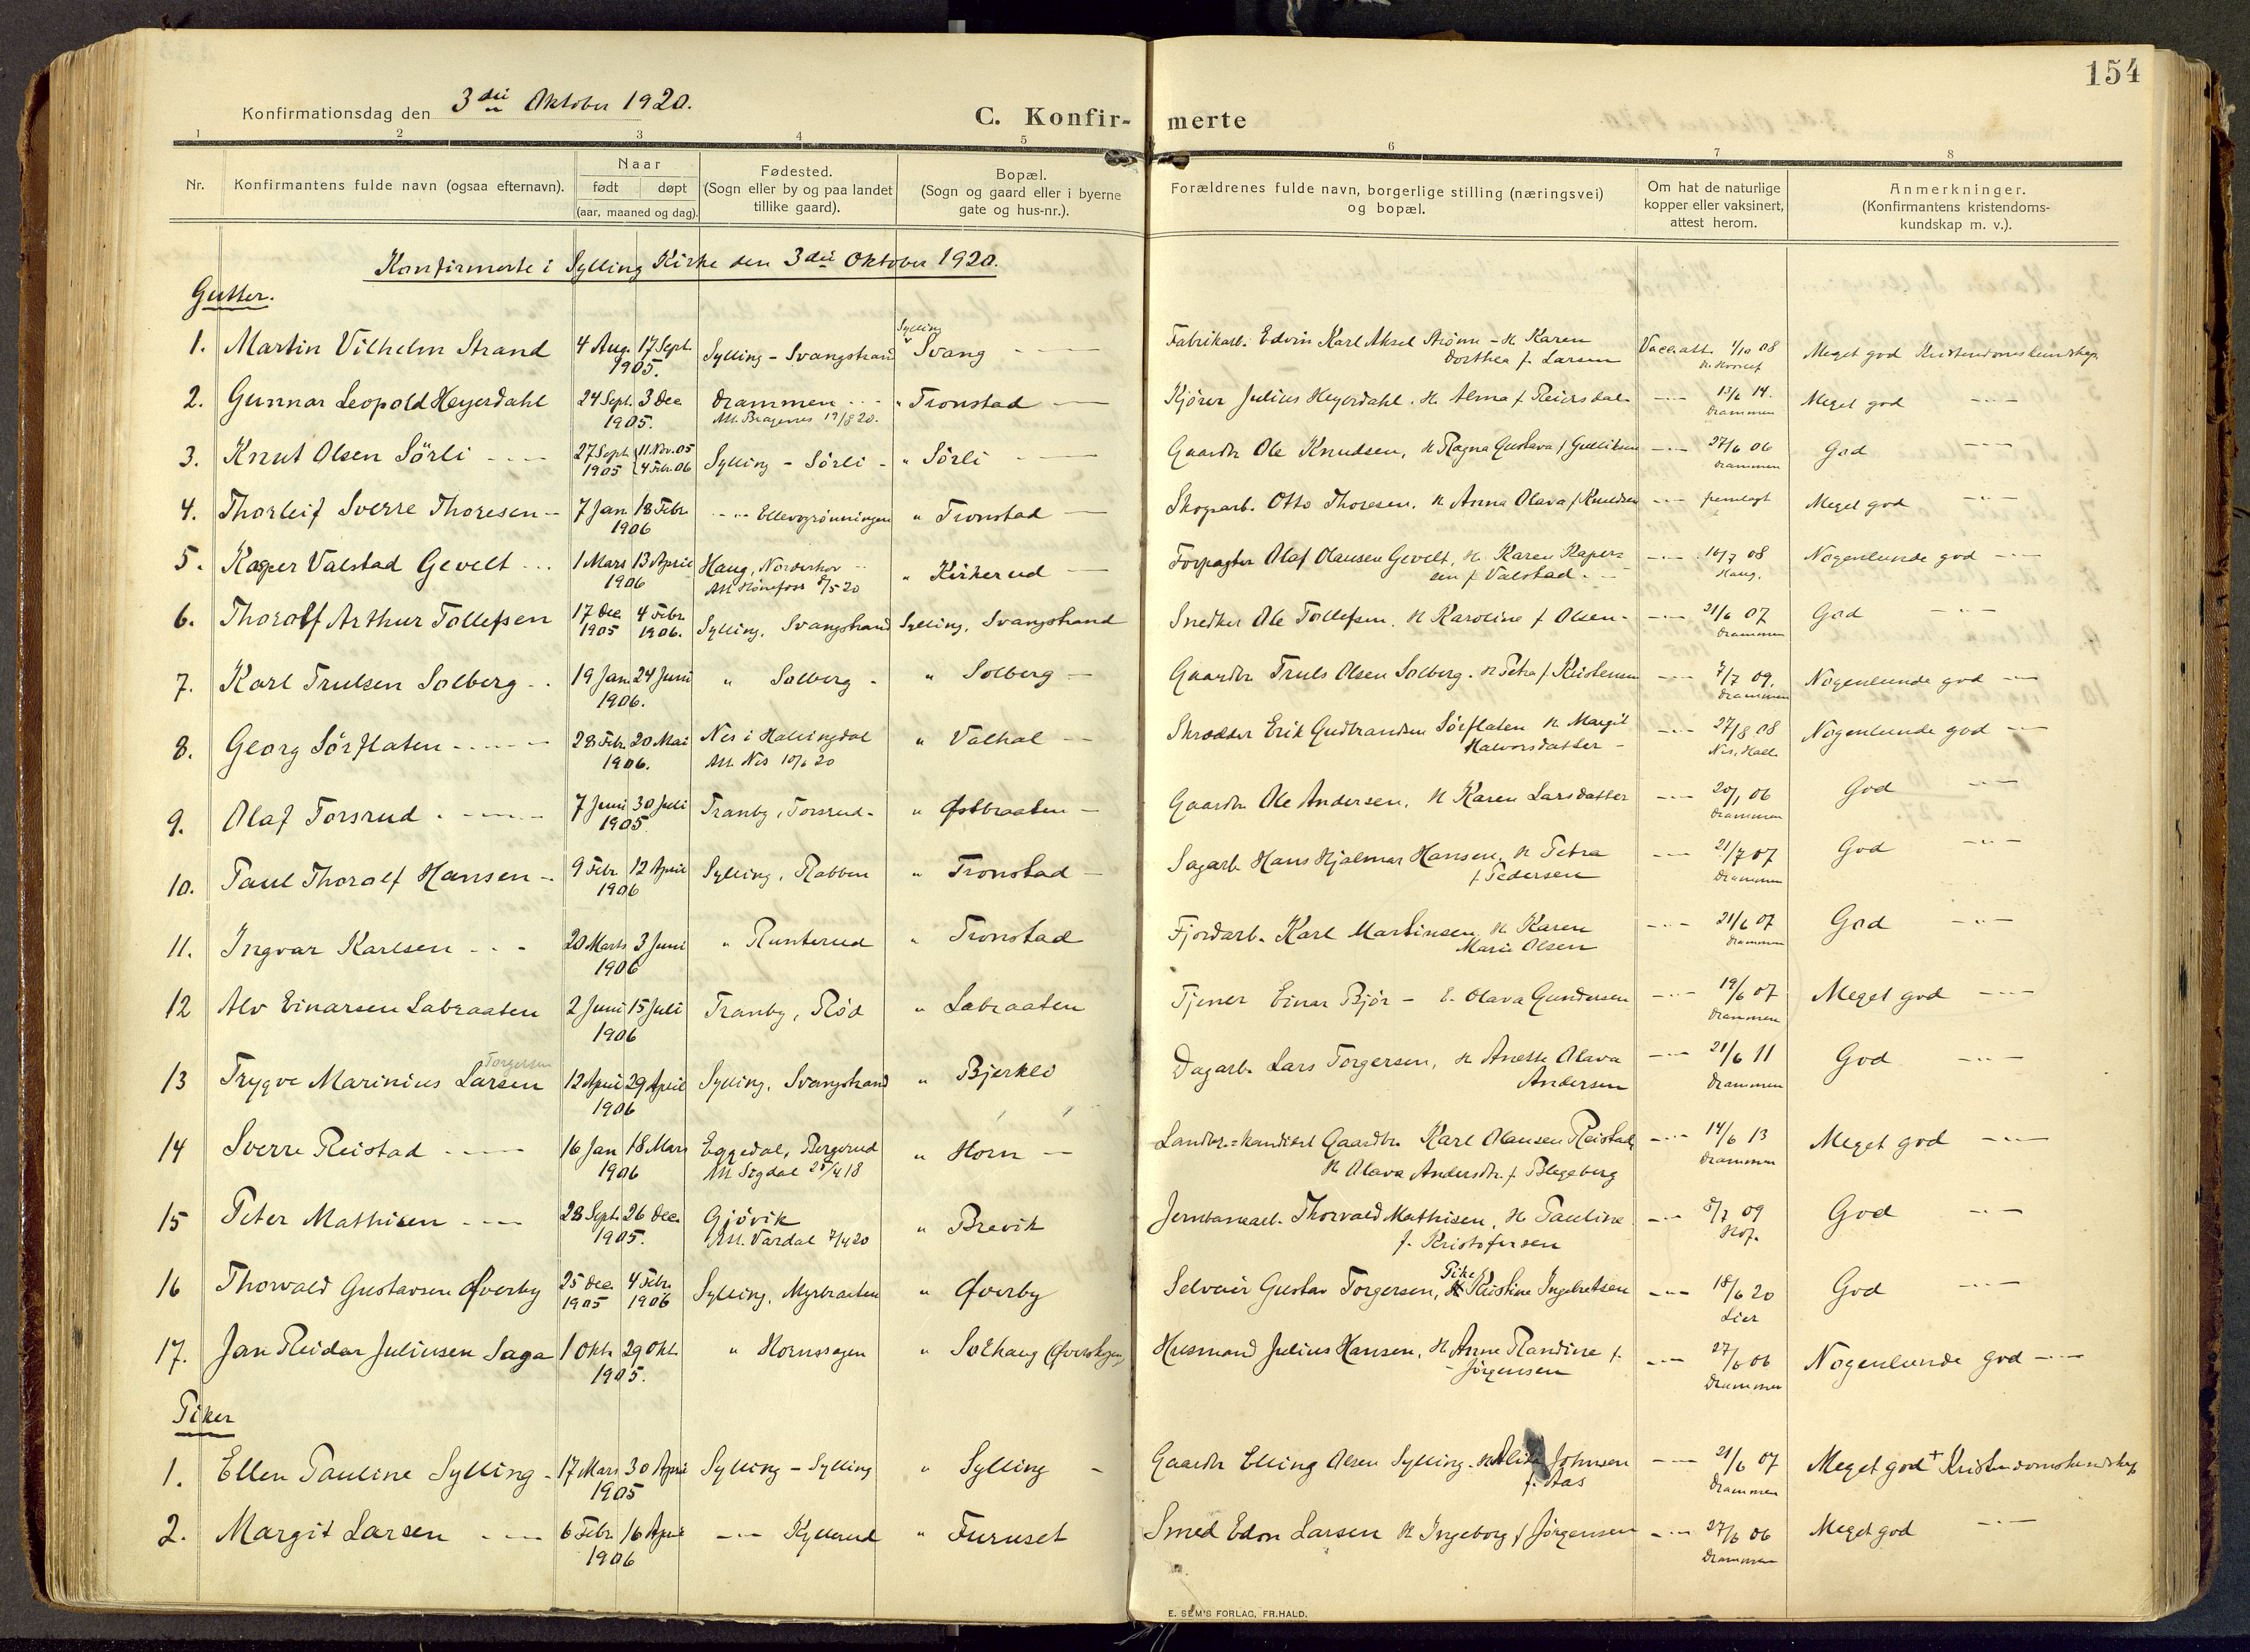 154
Konfirmationsdag den 3die Oktober 1920.
C. Konfirmerte
1 2 3 4 5 6 7 8
Nr.
Konfirmantens fulde navn (ogsaa efternavn).
Naar
født døpt
(aar, maaned og dag).
Fødested.
(Sogn eller by og paa landet
tillike gaard).
Bopæl.
(Sogn og gaard eller i byerne
gate og hus-nr.).
Forældrenes fulde navn, borgerlige stilling (næringsvei)
og bopæl.
Om hat de naturlige
kopper eller vaksinert,
attest herom.
Anmerkninger.
(Konfirmantens kristendoms-
kundskap m. v.).
Konfirmerte i Sylling Kirke den 3die Oktober 1920.
Gutter.
1. Martin Vilhelm Strand 4 Aug. 17 Sept. 1905. Sylling - Svangstrand Sylling Svang Fabrikarb. Edvin Karl Aksel Strøm - H. Karen Dorthea f. Larsen Vacc.att. 1/10 08 Meget god Kristendomskundskap
2. Gunnar Leopold Heyerdahl 24 Sept. 3 Dec 1905. Drammen Att. Bragernes 19/8 20. " Tronstad Kjører Julius Heyerdahl. H. Alma f Reiersdal - 13/6 14. Drammen Meget god
3. Knut Olsen Sörli 27 Sept. 1905 11 Nov. 05 4 Febr. 06 Sylling - Sörli - " Sörli Gaardbr Ole Knudsen, H Ragna Gustava f Gulliksen 27/6 06 Drammen God
4. Thorleif Sverre Thoresen 7 Jan 18 Febr 1906 Ellevogrønningen " Tronstad Skogsarb. Otto Thoresen. H Anna Olava f Knudsen fremlagt Meget god
5. Kasper Valstad Gevelt 1 Mars 13 April 1906 Haug, Norderhov Att Hønefoss 8/5 20 " Kirkerud Forpagter Olaf Olausen Gevelt, H. Karen Kaspersen f Valstad. 16/7 08 Haug. Nogenlunde god
6. Thorolf Arthur Tollefsen 17 Dec 1905 4 Febr 1906. Sylling, Svangstrand Sylling, Svangstrand Snedker Ole Tollefsen. H Karoline f Olsen - 21/6 07 Drammen God
7. Karl Trulsen Solberg 19 Jan 24 Juni 1906. " Solberg " Solberg Gaardbr Truls Olsen Solberg. H Petra f Kristensen 7/7 09. Drammen Nogenlunde god
8. Georg Sörflaten 28 Febr. 20 Mai 1906. Nes i Hallingdal Att. Nes 10/6 20 " Valhal Skrædder Erik Gudbrandsen Sörflaten H. Margit Halvorsdatter 27/8 08 Nes, Hall. Nogenlunde god
9. Olaf Torsrud 7 Juni 30 Juli 1905 Tranby, Torsrud " Østbraaten Gaardbr Ole Andersen, H Karen Larsdatter 20/1 06 Drammen God
10. Paul Thorolf Hansen 9 Febr. 12 April 1906 Sylling, Rabben " Tronstad Sagarb. Hans Hjalmar Hansen, H Petra f Pedersen 21/7 07 Drammen God
11. Ingvar Karlsen 20 Marts 3 Juni 1906 " Runterud " Tronstad Fjordarb. Karl Martinsen. H. Karen Marie Olsen 21/6 07 Drammen God
12 Alv Einarsen Labraaten 2 Juni 15 Juli 1906 Tranby, Rød " Labraaten Tjener Einar Bjør - E. Olava Gundersen 19/6 07 Drammen Meget god
Torgersen
13 Trygve Marinius Larsen 12 April 29 April 1906 Sylling, Svangstrand " Bjerkli Dagarb. Lars Torgersen, H Anette Olava Andersen 21/6 11 Drammen God
14 Sverre Reistad 16 Jan 18 Mars 1906 Eggedal, Bergerud Att Sigdal 25/4 18 " Horn Landbr.-kandidat Gaardbr Karl Olausen Reistad, H Olava Andersdtr. f Blegeberg 14/6 13 Drammen Meget god
15 Peter Mathisen 28 Sept. 26 Dec. 1905. Gjövik Att. Vardal 7/4 20 " Brevik Jernbanearb. Thorvald Mathisen, H. Pauline f. Kristofersen 8/7 09 Hof. God
16 Thorvald Gustavsen Øverby 25 Dec 1905 4 Febr. 1906 Sylling, Myrbraaten " Øverby Selveier Gustav Torgersen, Pike Kristine Ingebretsen 18/6 20 Lier God
17. Jan Reidar Juliusen Saga 1 Okt. 29 Okt. 1905. " Hornssagen " Solhaug (Øverskogen) Husmand Julius Hansen, H. Anne Randine f. Jörgensen 27/6 06 Drammen Nogenlunde god
Piker
1. Ellen Pauline Sylling 17 Mars 30 April 1905 Sylling - Sylling " Sylling Gaardbr Elling Olsen Sylling. H Johnsen f. Aas 21/6 07 Drammen Meget god + Kristendomskundskap
2. Margit Larsen 6 Febr. 16 April 1906 Kyllerud " Furuset Smed Edon Larsen H Ingeborg f Jörgensen 27/6 06 Drammen Meget god
E. SEM'S FORLAG, FR.HALD.